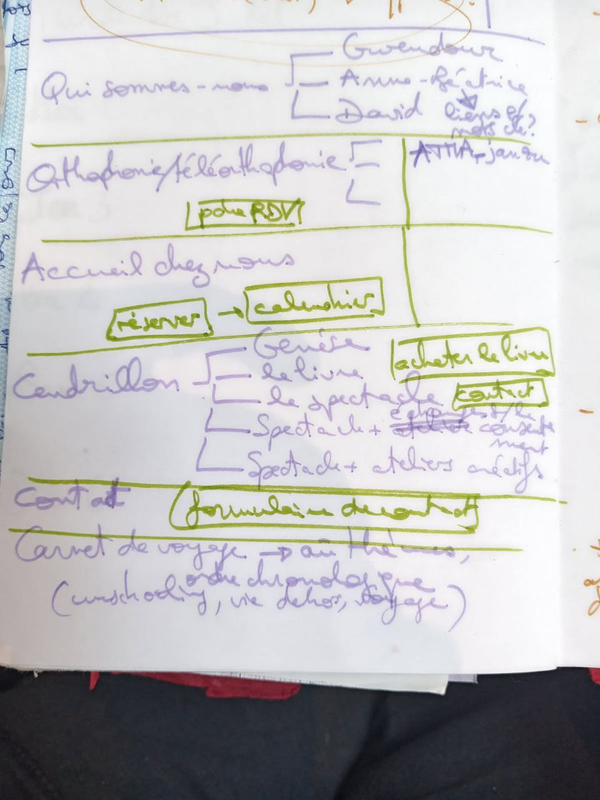 Gwendour
Qui sommes-nous
Anne-Béatrice
David liens s/
mots clé?
Orthophonie/téléorthophonie
RDV
Accueil chez nous
réserver → calendrier
Genèse
acheter le livre
Cendrillon
le livre
le spectacle
contact
échanges s/le
Spectacle + atelier consente
ment
Spectacle + ateliers créatifs
Contact
formulaire de contact
Carnet de voyage → thèmes,
ordre chronologique
(unschooling, vie dehors, voyage)